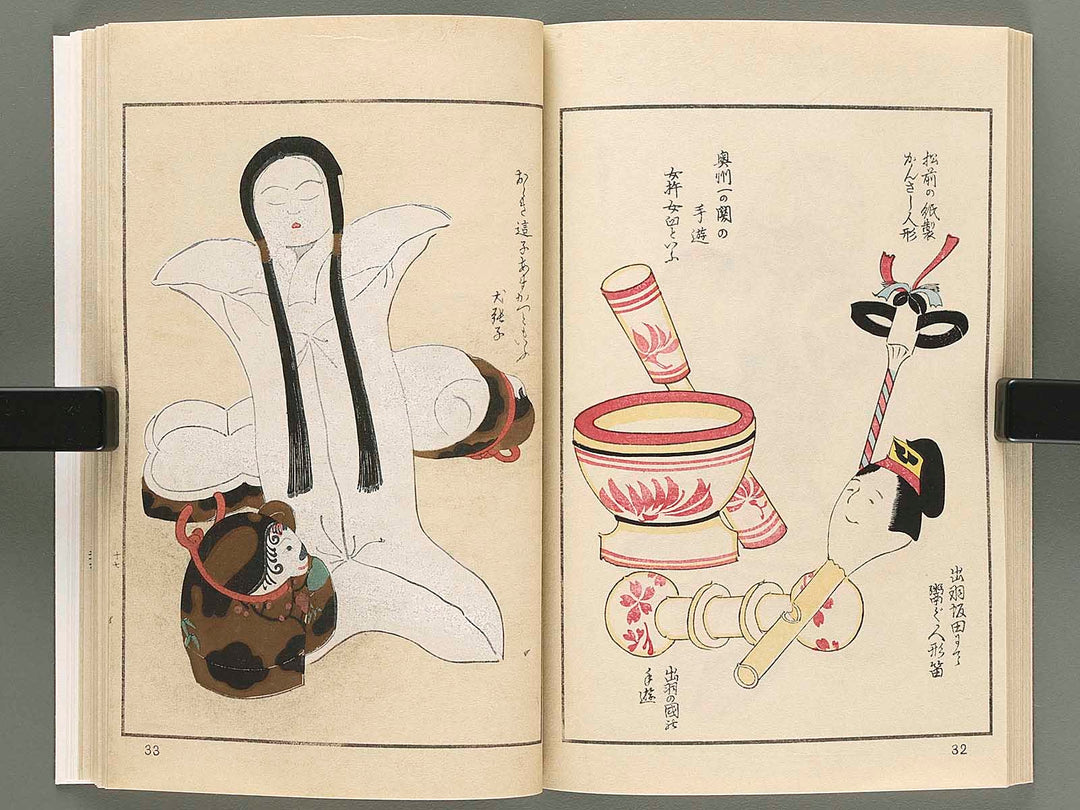 松前の紙製
かんざし人形
奥州一の関の
手遊
女杵女臼といふ
出羽坂田にて
鬻ぐ人形笛
出羽の國の
手遊
32
這子あまがつともいふ
犬張子
33